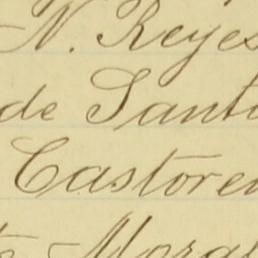 N. Reyes
de Santo
Castoren
te Moral